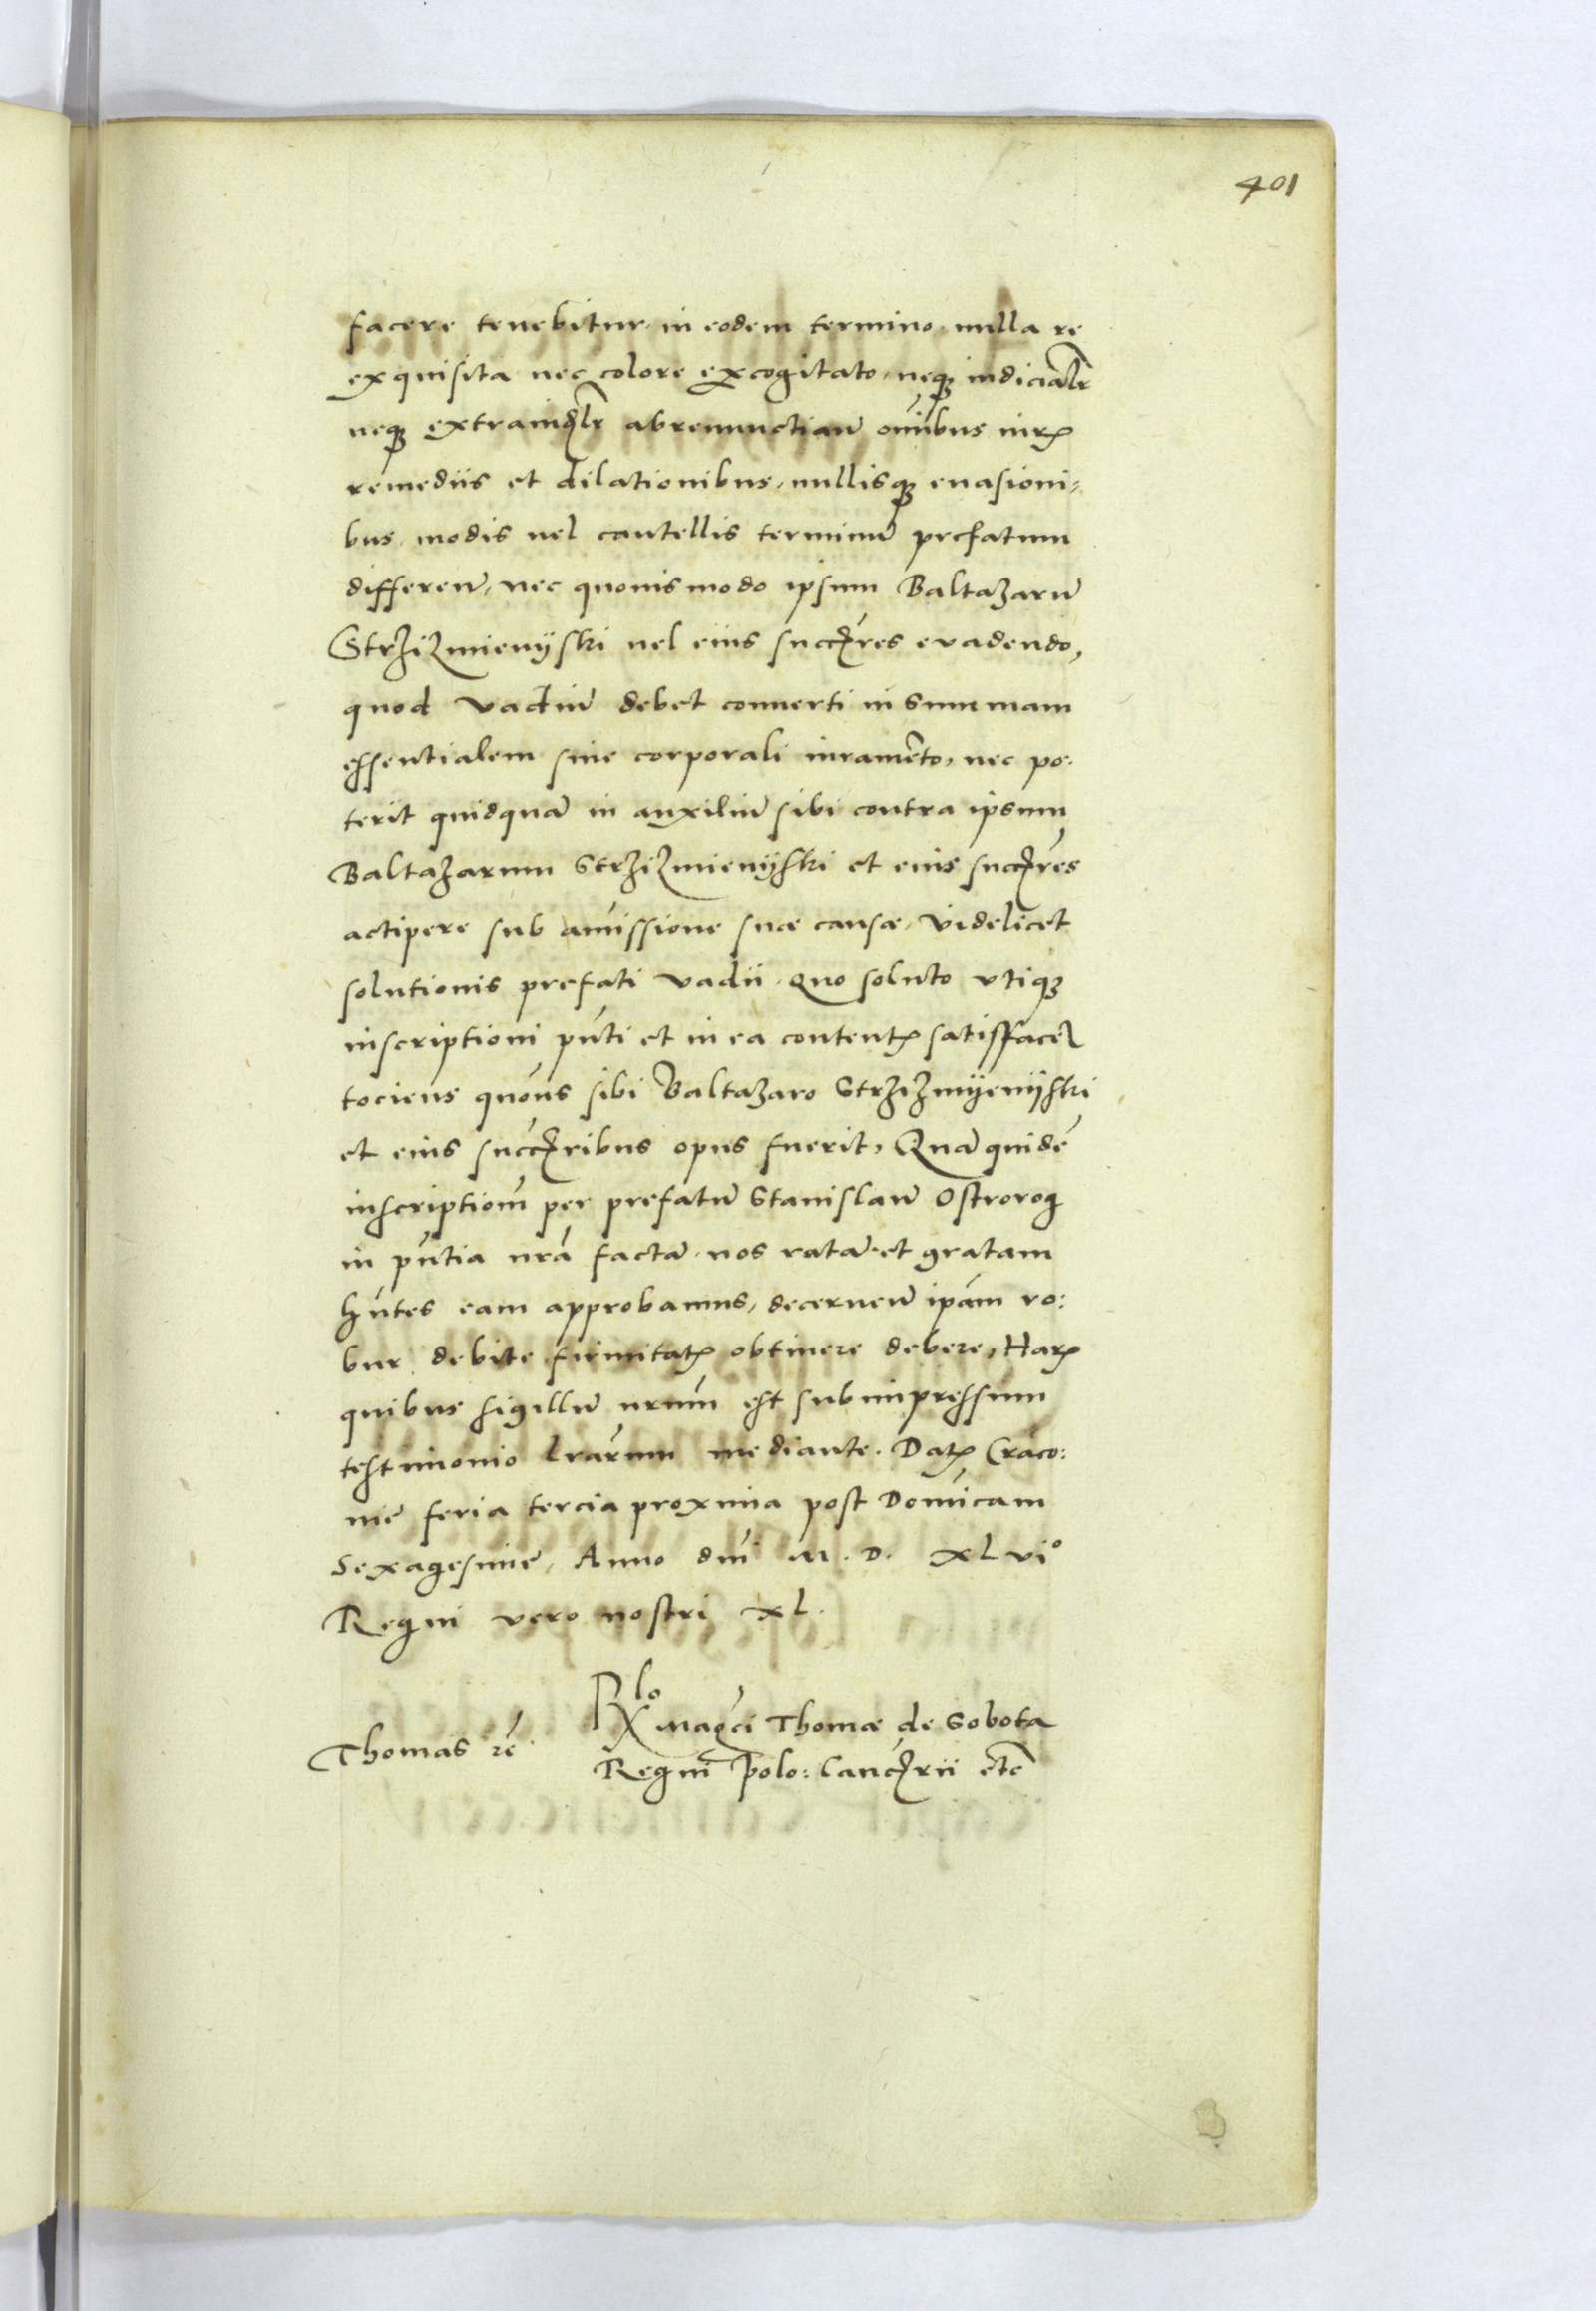 401
facere tenebitur in eodem termino nulla re
exquisita nec colore excogitato, neqꝫ iudicialr̃
neqꝫ extraiudlr̃ abrenunctian̄ oīnibus iurꝭ
remediis et dilationibus, nullisqꝫ euasioni=
bus, modis uel cautellis terminū prefatum
differen̄, nec quouismodo ipsum Baltazarū
Strzizmienÿski uel eius succr̃es evadendo,
quod vadiū debet conuerti in summam
essentialem sine corporali iuramēto, nec po=
terit quidquā in auxiliū sibi contra ipsum
Baltazarum Strzizmienÿski et eius succr̃es
accipere sub amissione suæ causæ, videlicet
solutionis prefati vadii. Quo soluto vtiqꝫ
inscriptioni pñti et in ea contentꝭ satisfacet
tociens quoñs sibi Baltazaro Strzizmÿenÿski
et eius succr̃ibus opus fuerit, Quā quidē
inscriptiom̄ per prefatū Stanislaū Ostrorog
in pñtia nr̃a factā nos ratā et gratam
hñtes eam approbamus, decernen̄ ip̃am ro=
bur debite firmitatꝭ obtinere debere, Harꝭ
quibus sigillū nrūm est subimpressum
testimonio lr̃arum mediante. Datꝭ Craco=
uiẽ feria tercia proxima post Domīcam
Sexagesimẽ, Anno dnī M. D. XLvi°
Regni vero nostri xl.
Thomas rẽ
Rlo magci Thomæ de Sobota
Regni Polo: Cancr̃ii etc̃